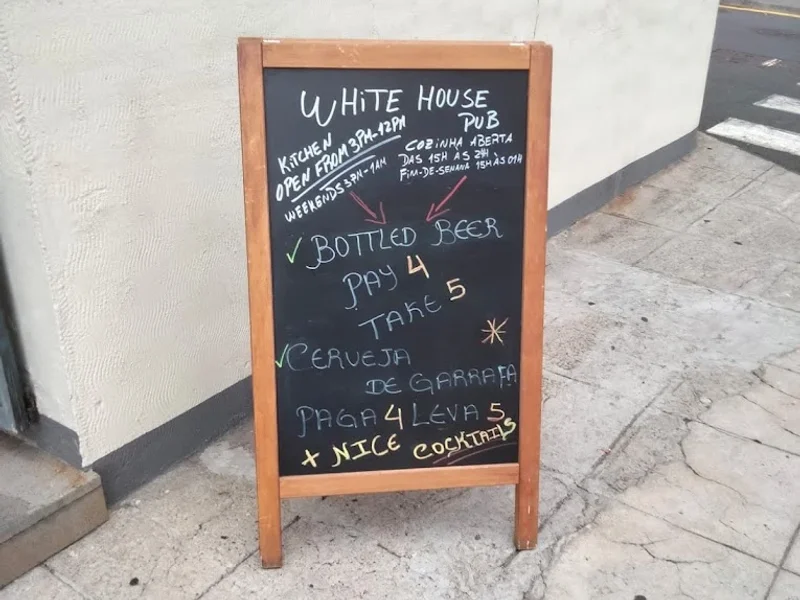 WHITE HOUSE
PUB
KITCHEN
OPEN FROM 3PM-12PM
WEEKENDS 3PM-1AM
COZINHA ABERTA
DAS 15H ÀS 24H
FIM-DE-SEMANA 15H ÀS 01H
✓ BOTTLED BEER
PAY 4
TAKE 5
✓ CERVEJA
DE GARRAFA
PAGA 4 LEVA 5
+ NICE COCKTAILS